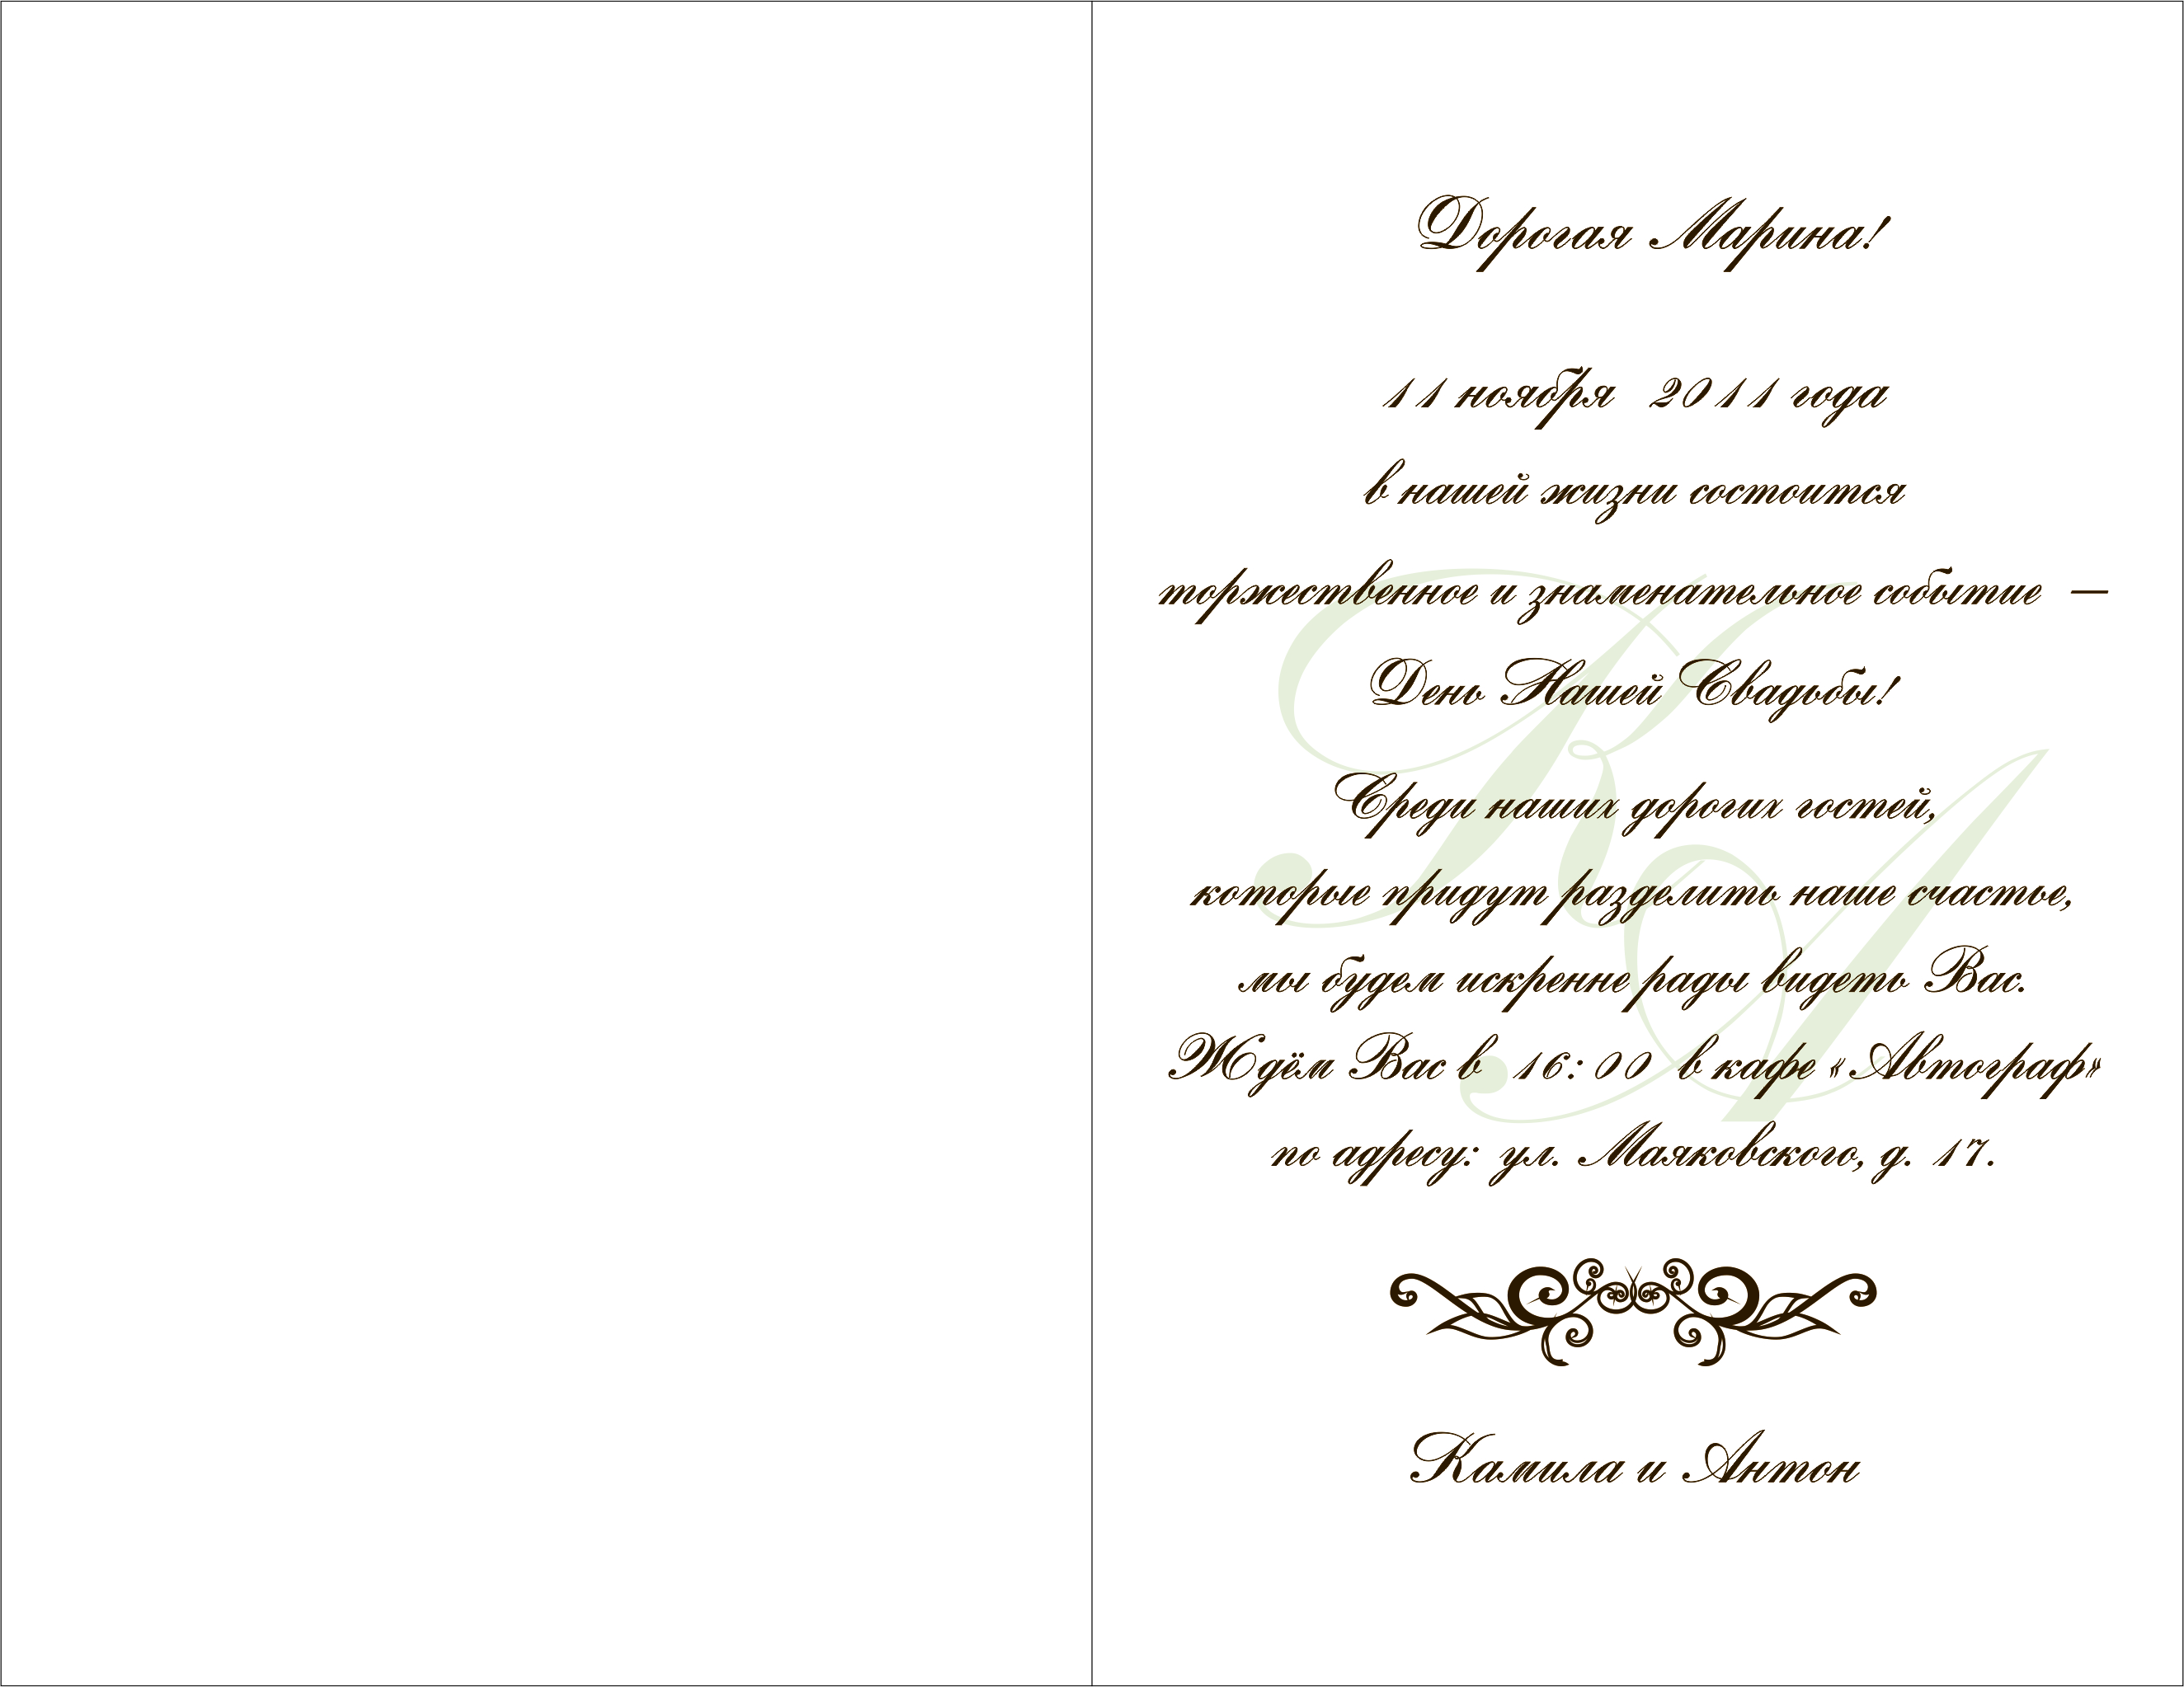 Дорогая Марина!
11 ноября 2011 года
в нашей жизни состоится
торжественное и знаменательное событие —
День Нашей Свадьбы!
Среди наших дорогих гостей,
которые придут разделить наше счастье,
мы будем искренне рады видеть Вас.
Ждём Вас в 16:00 в кафе «Автограф»
по адресу: ул. Маяковского, д. 17.
КА
Камила и Антон